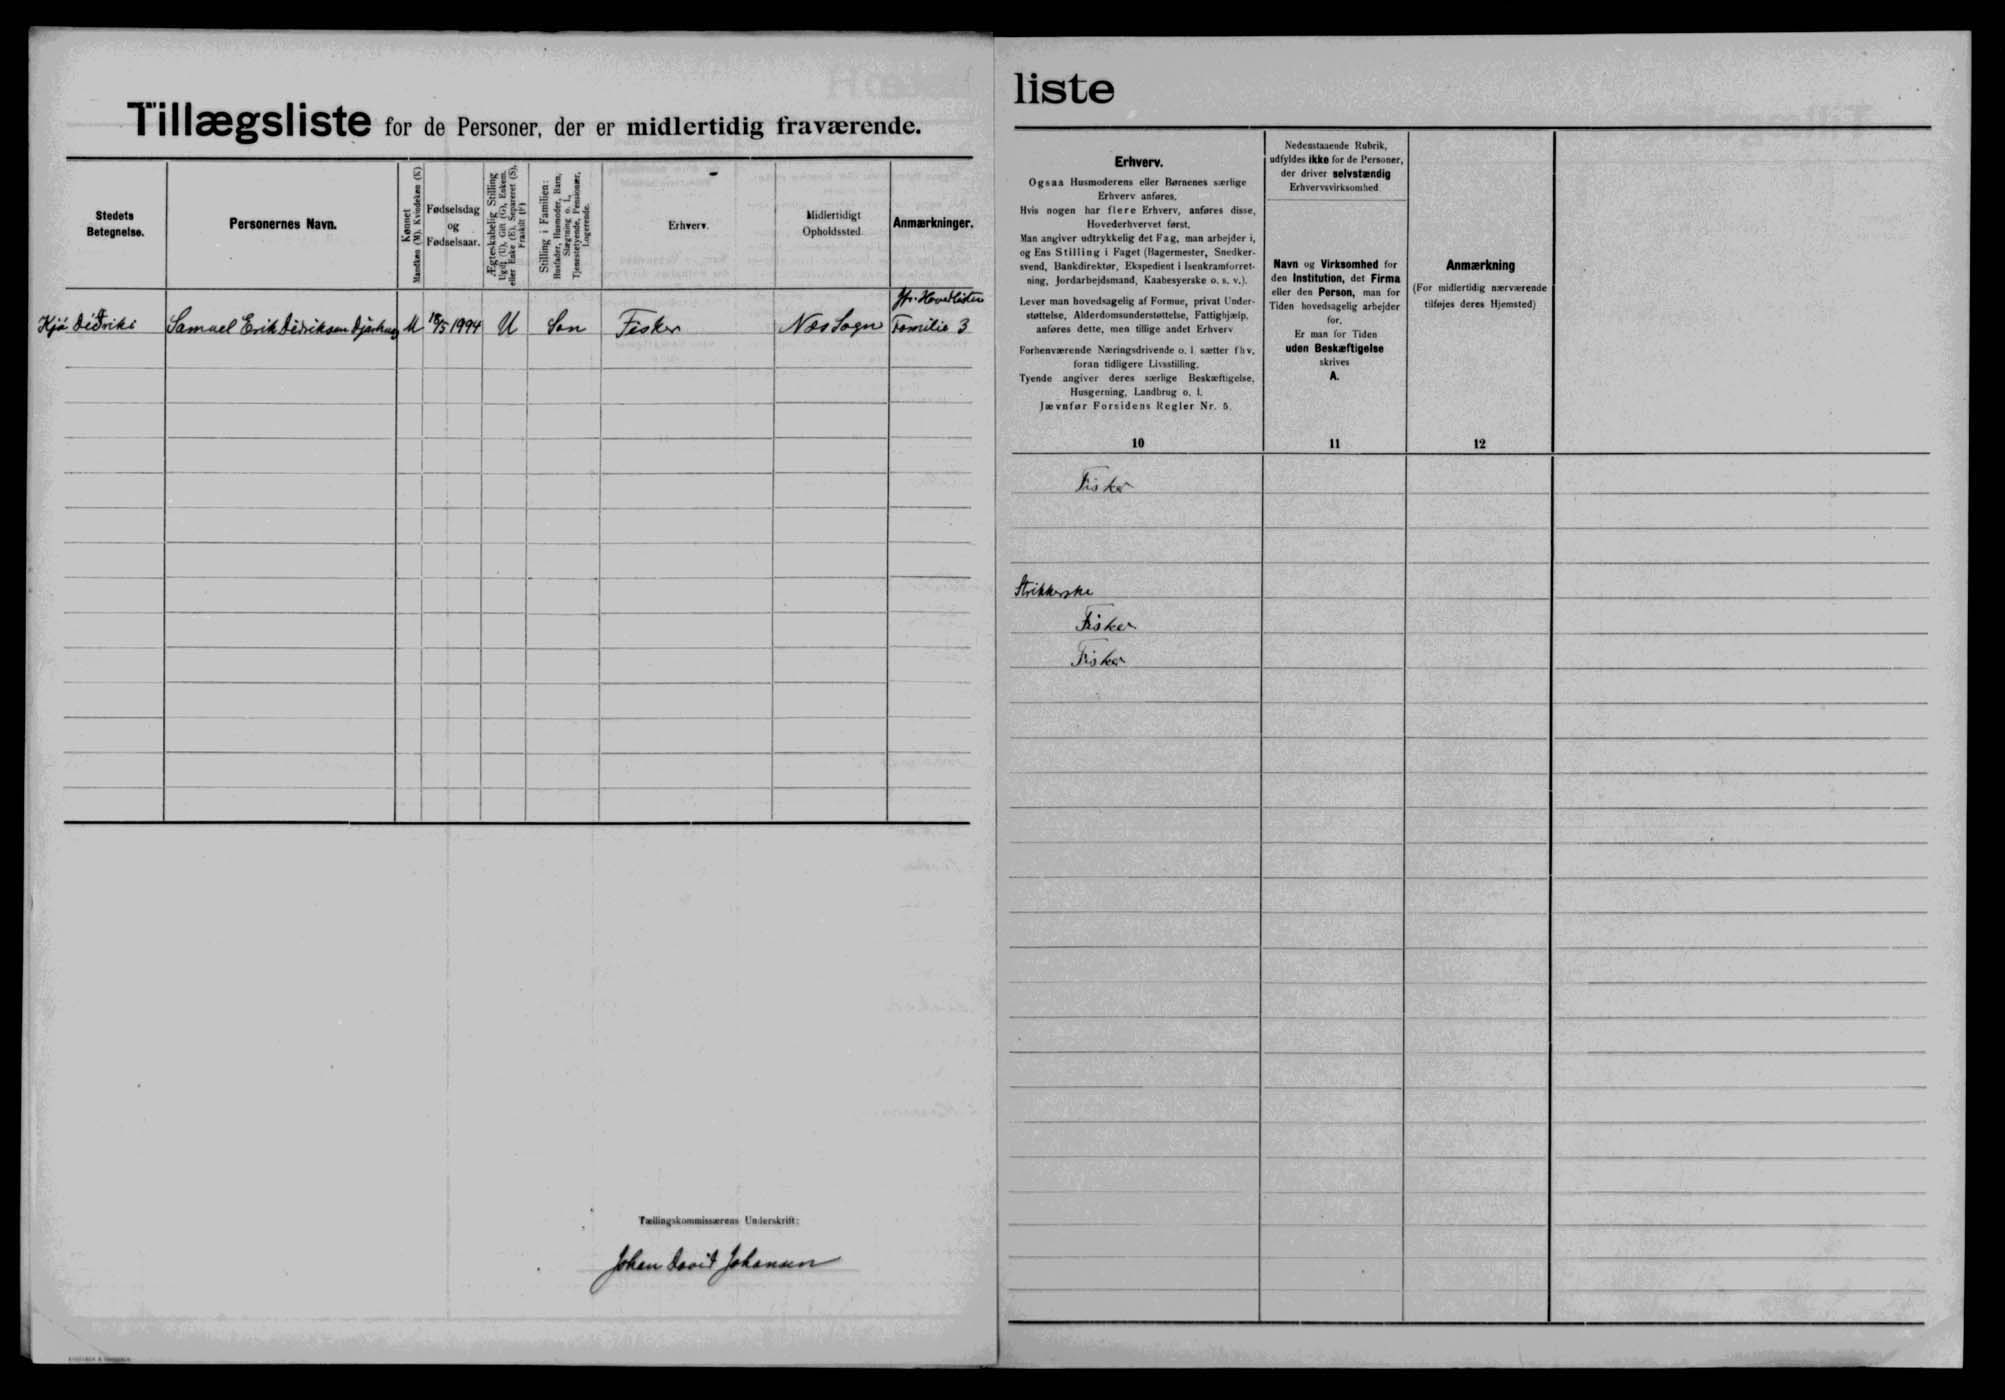 Tillægsliste for de Personer, der er midlertidig fraværende.
Stedets
Betegnelse.
Personernes Navn.
Kønnet
Mandkøn (M). Kvindekøn (K)
Fødselsdag
og
Fødselsaar.
Ægteskabelig Stilling
Ugift (U), Gift (G), Enkem.
eller Enke (E), Separeret (S),
Fraskilt (F)
Stilling i Familien:
Husfader, Husmoder, Barn,
Slægtning o. l.,
Tjenestetyende, Pensionær,
Logerende.
Erhverv.
Midlertidigt
Opholdssted
Anmærkninger.
Samuel Erik Didriksen M 1994 U Søn Fisker Næs Sogn Familie 3
Tællingskommissærens Underskrift:
Johan David Johansen
liste
Erhverv.
Ogsaa Husmoderens eller Børnenes særlige
Erhverv anføres.
Hvis nogen har flere Erhverv, anføres disse,
Hovederhvervet først.
Man angiver udtrykkelig det Fag, man arbejder i,
og Ens Stilling i Faget (Bagermester, Snedker-
svend, Bankdirektør, Ekspedient i Isenkramforret-
ning, Jordarbejdsmand, Kaabesyerske o. s. v.).
Lever man hovedsagelig af Formue, privat Under-
støttelse, Alderdomsunderstøttelse, Fattighjælp,
anføres dette, men tillige andet Erhverv
Forhenværende Næringsdrivende o. l. sætter fhv.
foran tidligere Livsstilling.
Tyende angiver deres særlige Beskæftigelse,
Husgerning, Landbrug o. l.
Jævnfør Forsidens Regler Nr. 5.
10
Nedenstaaende Rubrik,
udfyldes ikke for de Personer,
der driver selvstændig
Erhvervsvirksomhed
Navn og Virksomhed for
den Institution, det Firma
eller den Person, man for
Tiden hovedsagelig arbejder
for.
Er man for Tiden
uden Beskæftigelse
skrives
A.
11
Anmærkning
(For midlertidig nærværende
tilføjes deres Hjemsted)
12
Fisker
Strikkerske
Fisker
Fisker